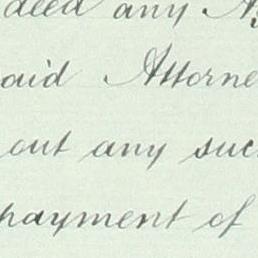 deed any A
aid Attorne
out any suc
payment of